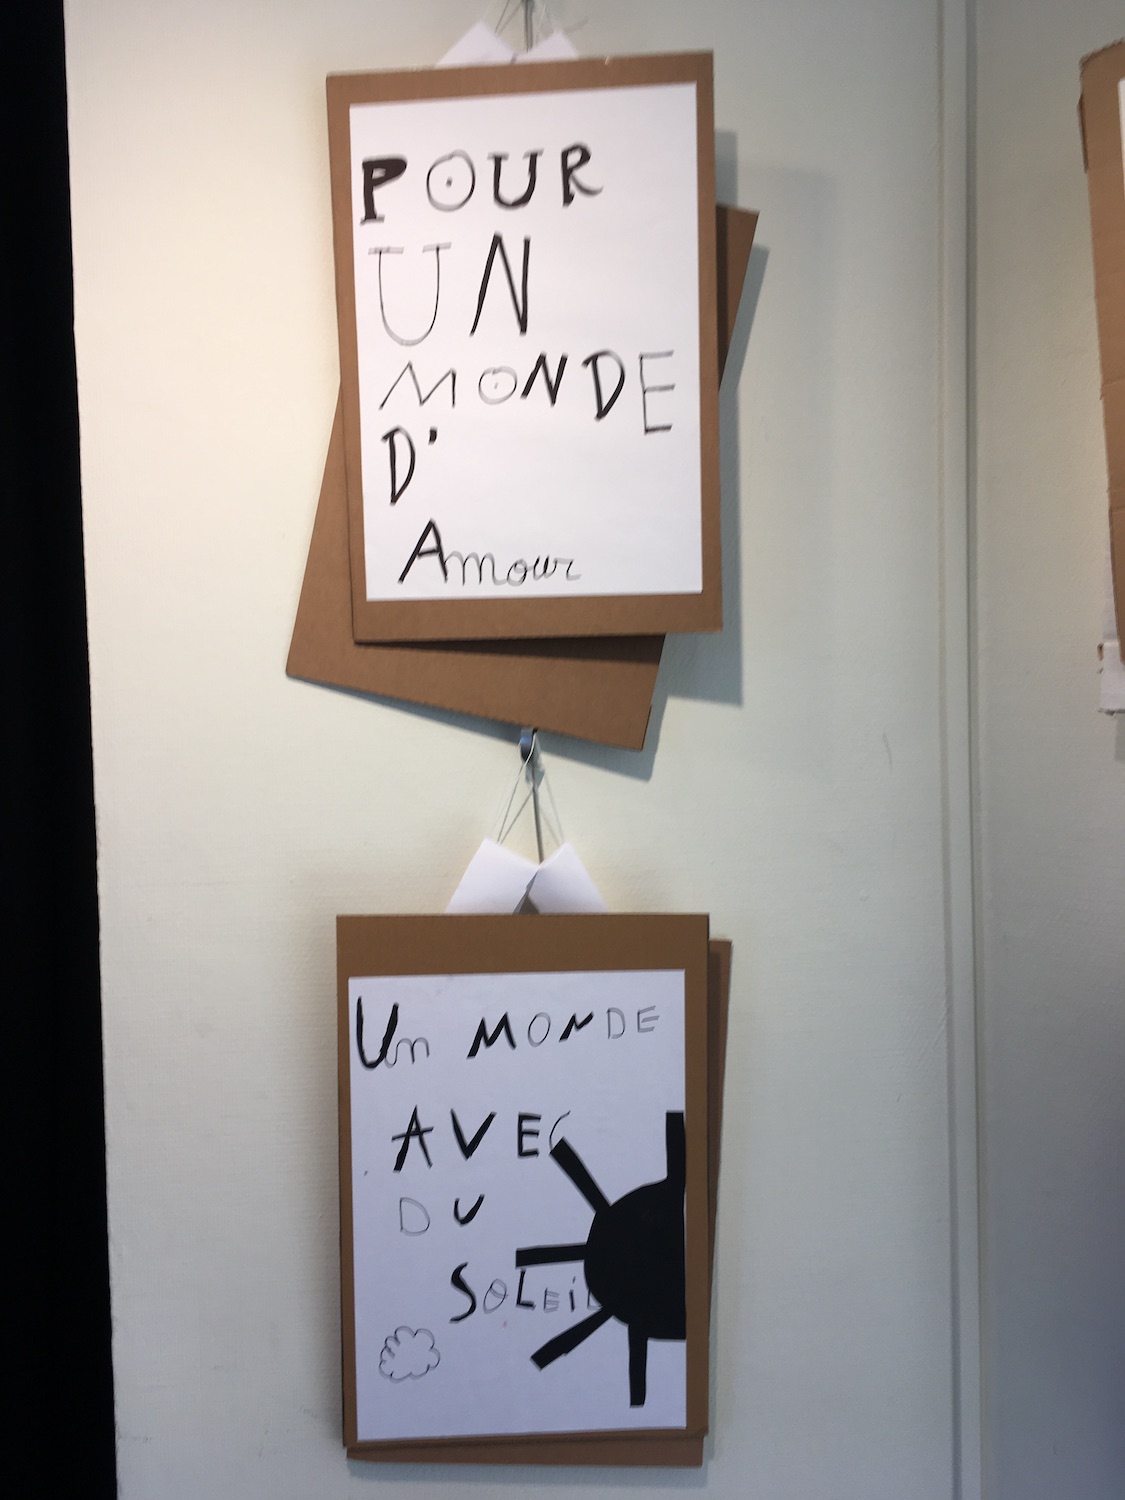 POUR
UN
MONDE
D'
Amour
Un MONDE
AVEC
DU
SOLEIL